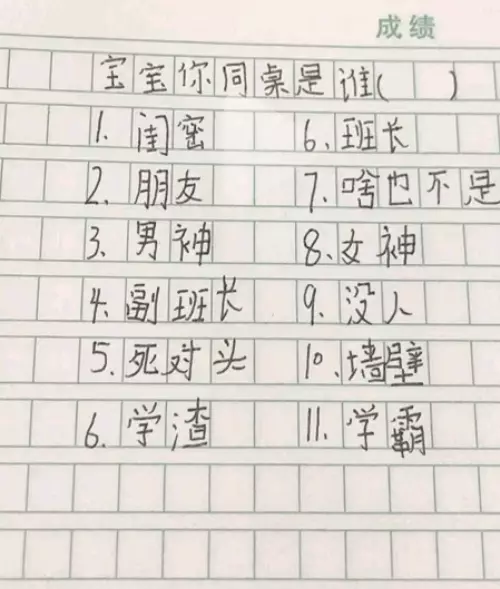 成绩
宝宝你同桌是谁( )
1. 闺密 6. 班长
2. 朋友 7. 啥也不是
3. 男神 8. 女神
4. 副班长 9. 没人
5. 死对头 10. 墙壁
6. 学渣 11. 学霸